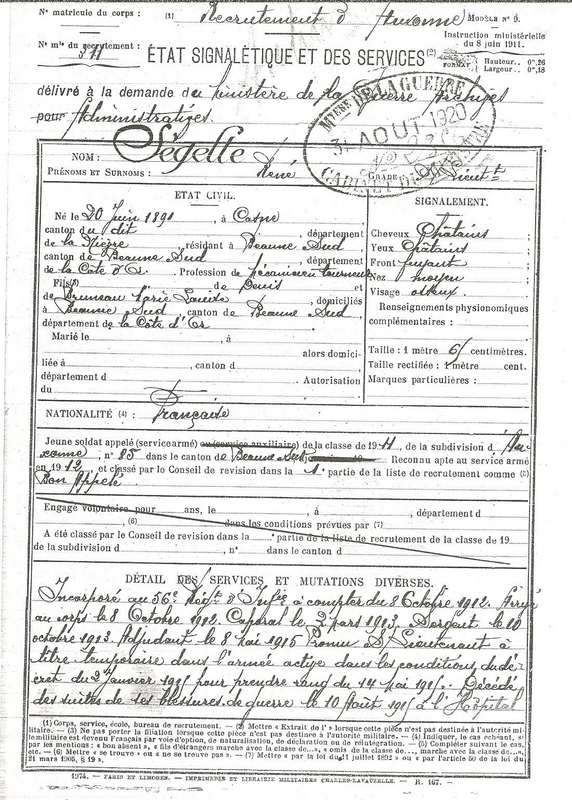 N° matricule du corps :
(1) Recrutement d'Auxonne
MODÈLE N° 9.
Instruction ministérielle
du 8 juin 1911.
N° mle du recrutement :
511
ÉTAT SIGNALÉTIQUE ET DES SERVICES (2)
FORMAT
Hauteur.. 0m,26
Largeur.. 0m,18
délivré à la demande du Ministère de la Guerre Archives
pour Administratives.
MTÈRE DE LA GUERRE
31 AOUT 1920
CABINET DU MINISTRE
NOM : Ségelle
PRÉNOMS ET SURNOMS : René
GRADE Lieutt
ETAT CIVIL.
Né le 20 Juin 1891, à Cosne
canton du dit, département
de la Nièvre, résidant à Beaune Sud
canton de Beaune Sud, département
de la Côte d'Or, Profession de mécanicien tourneur
Fils(3) de Denis et
de Bruneau Marie Louise, domiciliés
à Beaune Sud, canton de Beaune Sud,
département de la Côte d'Or
Marié le , à
alors domici-
liée à , canton d
département d . Autorisation
du
SIGNALEMENT.
Cheveux Châtains
Yeux Châtains
Front fuyant
Nez moyen
Visage osseux
Renseignements physionomiques
complémentaires :
Taille : 1 mètre 61 centimètres.
Taille rectifiée : 1 mètre cent.
Marques particulières :
NATIONALITÉ (4) : Française
Jeune soldat appelé (service armé) ou (service auxiliaire) de la classe de 1911, de la subdivision d'Au-
xonne, n° 85 dans le canton de Beaune Sud Reconnu apte au service armé
en 1912, et classé par le Conseil de revision dans la 1e partie de la liste de recrutement comme (5)
Bon Appelé
Engagé volontaire pour ans, le , à , département d
, (6) dans les conditions prévues par (7)
A été classé par le Conseil de revision dans la partie de la liste de recrutement de la classe de 19
de la subdivision d , n° dans le canton d
DÉTAIL DES SERVICES ET MUTATIONS DIVERSES.
Incorporé au 56e Régt d'Infie à compter du 8 Octobre 1912. Arrivé
au corps le 8 Octobre 1912. Caporal le 3 Mars 1913. Sergent le 10
octobre 1913. Adjudant le 8 Mai 1915. Promu S/Lieutenant à
titre temporaire dans l'armée active dans les conditions du dé-
cret du 2 Janvier 1915 pour prendre rang du 14 Mai 1915. Décédé
des suites de ses blessures de guerre le 10 Août 1915 à l'Hôpital
(1) Corps, service, école, bureau de recrutement. — (2) Mettre « Extrait de l' » lorsque cette pièce n'est pas destinée à l'autorité mi-
litaire. — (3) Ne pas porter la filiation lorsque cette pièce n'est pas destinée à l'autorité militaire. — (4) Indiquer, le cas échéant, si
le militaire est devenu Français par voie d'option, de naturalisation, de déclaration ou de réintégration. — (5) Compléter suivant le cas,
par les mentions : « bon absent », « fils d'étrangers marche avec la classe de... », « omis de la classe de... marche avec la classe de...»,
etc. — (6) Mettre « se trouve » ou « ne se trouve pas ». — (7) Mettre « par la loi du 11 juillet 1892 » ou « par l'article 50 de la loi du
21 mars 1905, § 19 ».
1974. — PARIS ET LIMOGES. — IMPRIMERIE ET LIBRAIRIE MILITAIRES CHARLES-LAVAUZELLE. — R. 167.